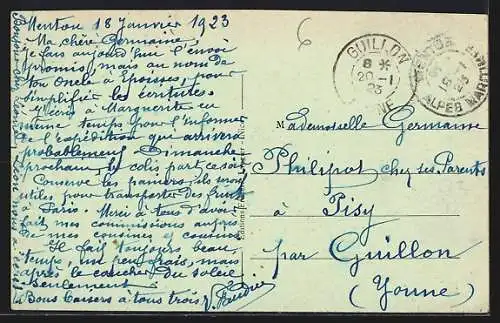 Menton 18 Janvier 1923
Ma chère Germaine,
Je fais aujourd'hui l'envoi
promis, mais au nom de
ton Oncle à Epoisses, pour
simplifier les écritures
J'écris à Marguerite en
même temps pour l'informer
de l'expédition qui arrivera
probablement Dimanche
prochain, le colis part ce soir.
Conserve les paniers, ils sont
utiles pour transporter des fruits
à Paris. Merci à tous d'avoir
fait mes commissions auprès
de mes cousines et cousins
Il fait toujours beau
temps, un peu frais, mais
après le coucher du soleil
seulement
Bons baisers à tous trois
GUILLON
8 *
20 -1
23
YONNE
MENTON
15 -1
23
ALPES MARITIMES
Mademoiselle Germaine
Philipot chez ses Parents
à Pisy
par Guillon
(Yonne)